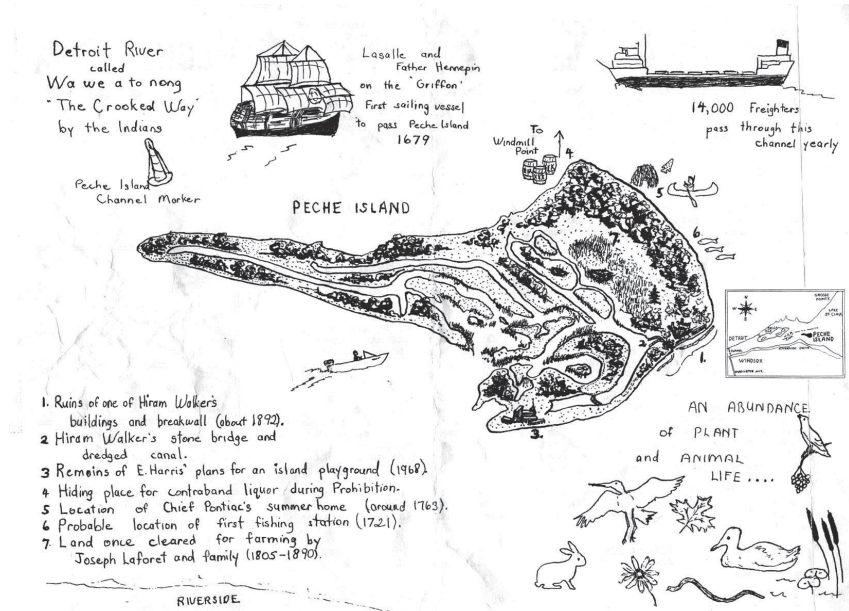 Detroit River
called
Wa we a to nong
"The Crooked Way"
by the Indians
Lasalle and
Father Hennepin
on the "Griffon"
First sailing vessel
to pass Peche Island
1679
14,000 Freighters
pass through this
channel yearly
Peche Island
Channel Marker
To
Windmill
Point
PECHE ISLAND
4.
5
6
7
2
1.
3.
DETROIT
WINDSOR
PECHE
ISLAND
1. Ruins of one of Hiram Walker's
buildings and breakwall (about 1892).
2 Hiram Walker's stone bridge and
dredged canal.
3 Remains of E. Harris' plans for an island playground (1968).
4 Hiding place for contraband liquor during Prohibition.
5 Location of Chief Pontiac's summer home (around 1763).
6 Probable location of first fishing station (1721).
7. Land once cleared for farming by
Joseph Laforet and family (1805-1890).
AN ABUNDANCE
of PLANT
and ANIMAL
LIFE....
RIVERSIDE